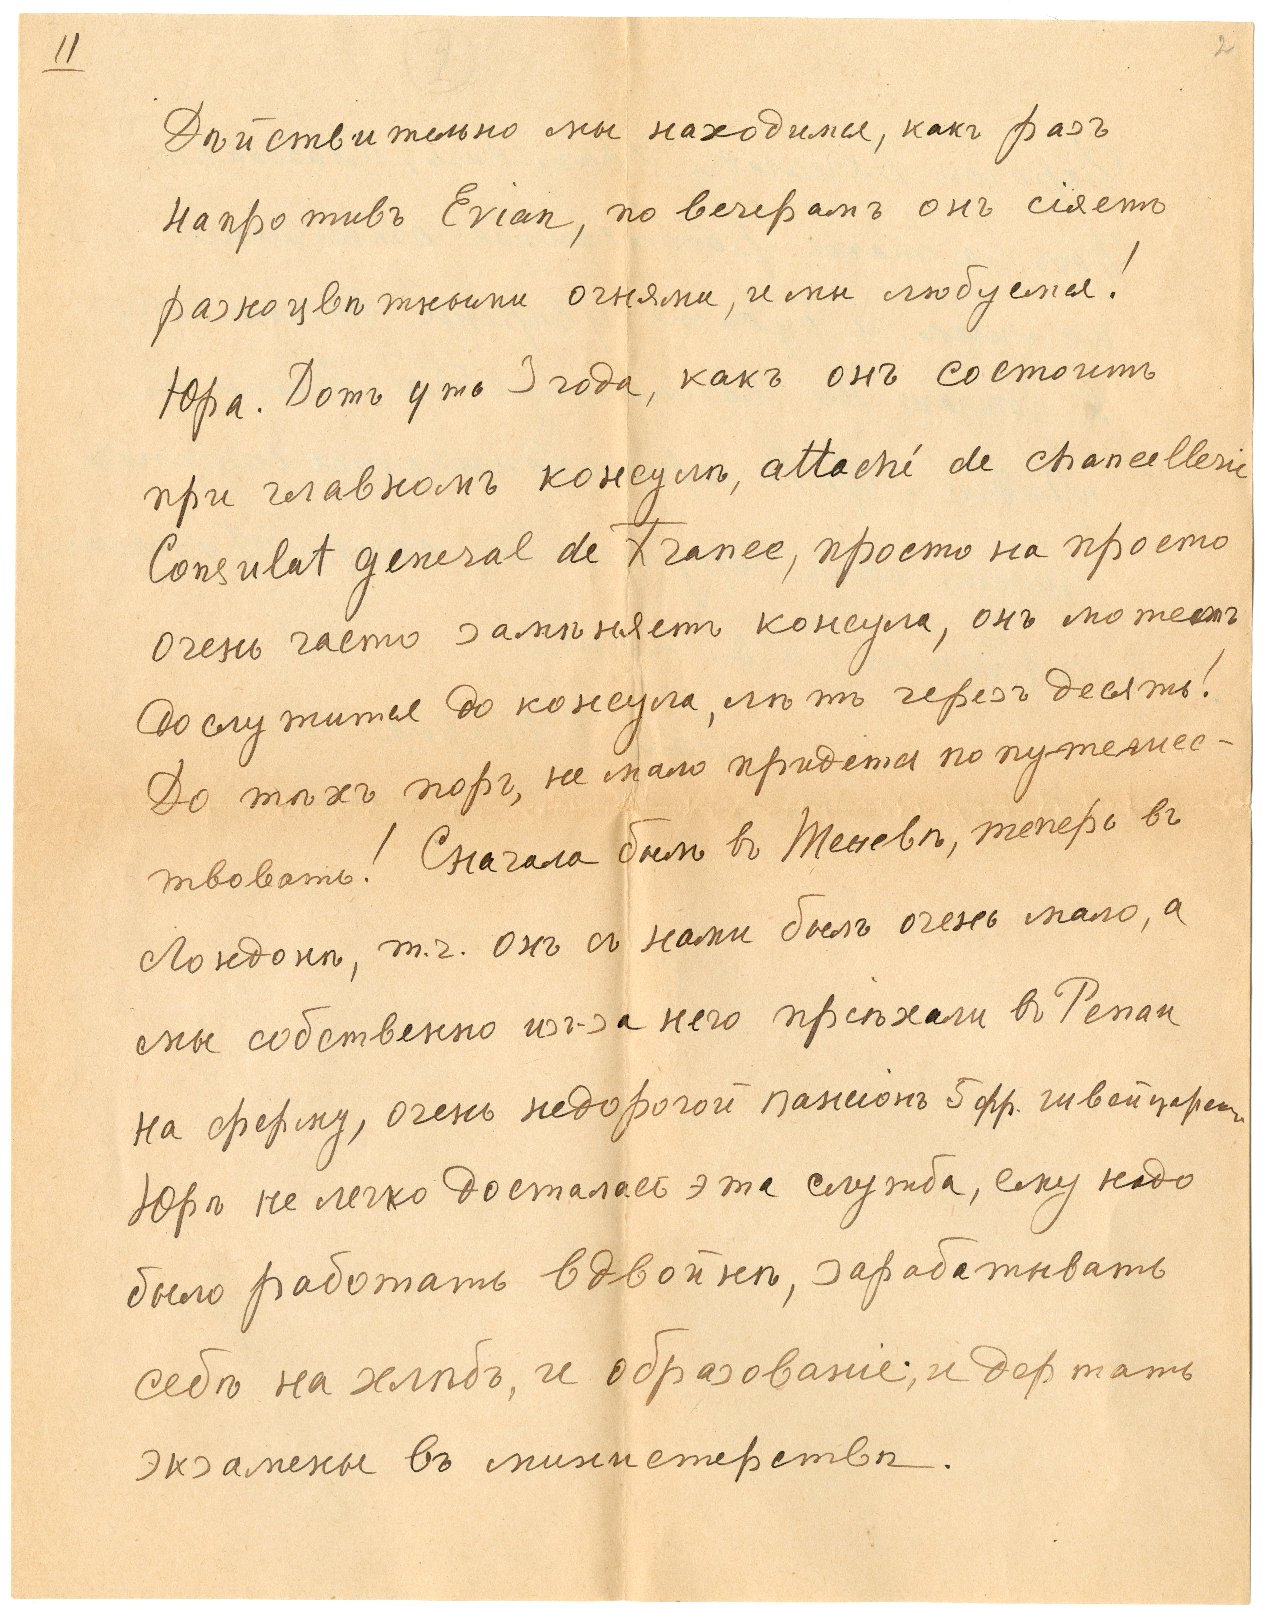 11
2
Дѣйствительно мы находимся, какъ разъ
напротивъ Evian, по вечерамъ онъ сіяетъ
разноцвѣтными огнями, и мы любуемся!
Юра. Вотъ ужъ 3 года, какъ онъ состоитъ
при главномъ консулѣ, attaché de chancellerie
Consulat general de France, просто на просто
очень часто замѣняетъ консула, онъ можетъ
дослужится до консула, лѣтъ черезъ десять!
До тѣхъ поръ, не мало придется попутешес-
твовать! Сначала былъ въ Женевѣ, теперь въ
Лондонѣ, т.ч. онъ съ нами былъ очень мало, а
мы собственно изъ-за него пріѣхали въ Репаи
на ферму, очень недорогой пансіонъ 5 фр. швейцарск.
Юрѣ не легко досталась эта служба, ему надо
было работать вдвойнѣ, зарабатывать
себѣ на хлѣбъ, и образованіе, и держать
экзамены въ министерствѣ.